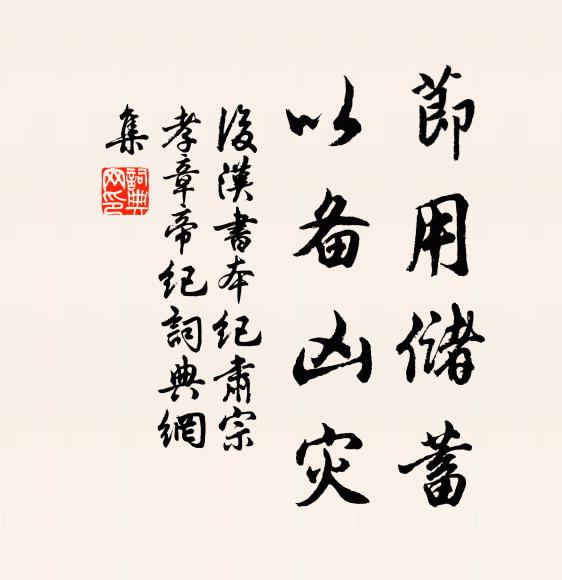 節用儲蓄
以备凶灾
後漢書本紀肅宗
孝章帝紀詞典網
集
詞典
网印